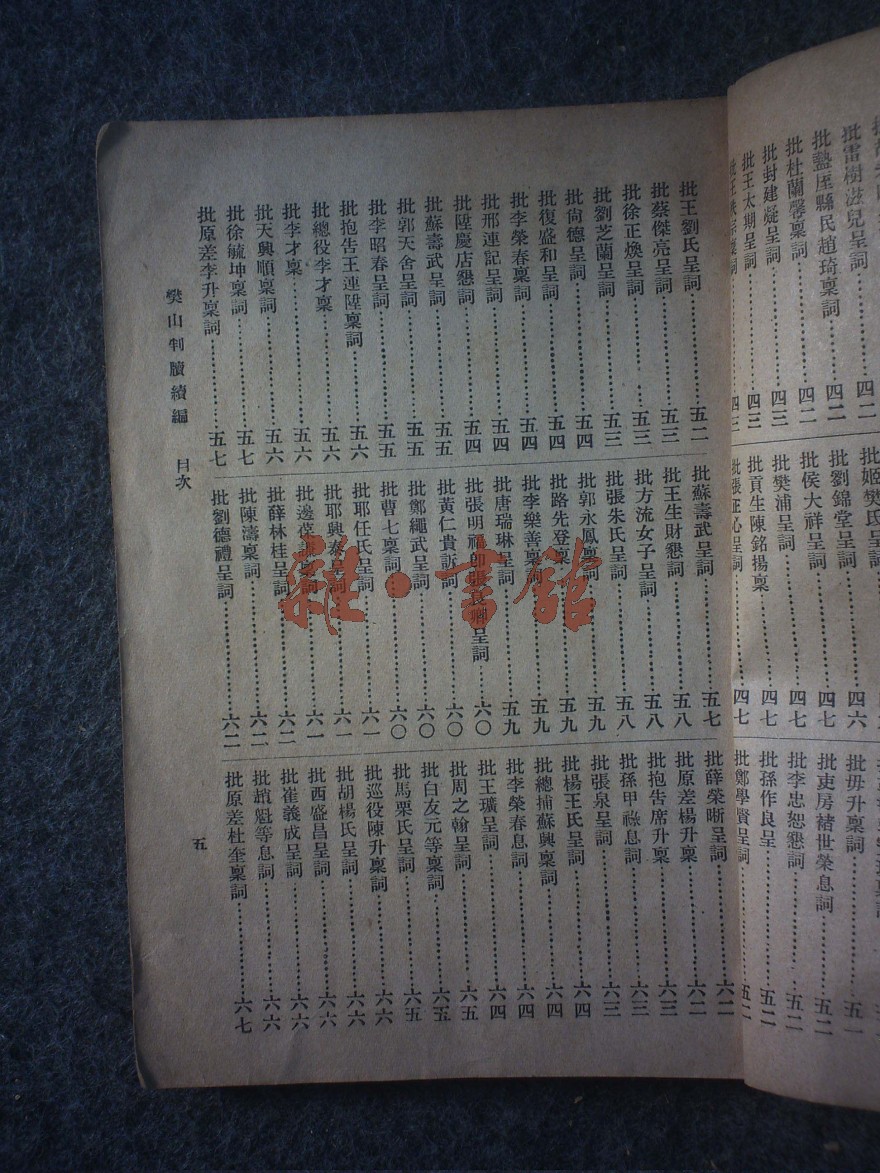 批雷樹滋兒呈詞 四二
批盩厔縣民趙琦稟詞 四二
批杜蘭馨稟詞 四二
批封建凝呈詞 四三
批王太期呈詞 四三
批姬樊氏呈詞 四六
批劉錦堂呈詞 四七
批侯大祥呈詞 四七
批樊浦呈詞 四七
批貢生陳銘揚稟 四七
批張正心呈詞 四七
批毋升稟詞 五一
批吏房褚世榮息詞 五二
批李忠恕懇詞 五二
批孫作良呈 五二
批鄭學賢呈詞 五二
批王劉氏呈詞 五二
批蔡傑亮呈詞 五三
批徐正煥呈詞 五三
批劉芝蘭呈詞 五三
批尙德呈詞 五四
批復盛和呈詞 五四
批李榮春稟詞 五四
批邢連記呈詞 五四
批陞慶店懇詞 五四
批蘇壽武呈詞 五五
批郭天舍呈詞 五五
批李昭春呈詞 五五
批抱告王連陞稟詞 五六
批總役李才稟 五六
批李才稟 五六
批天興順稟詞 五六
批徐毓坤稟詞 五七
批原差李升稟詞 五七
批蘇壽武呈詞 五七
批王生財懇詞 五八
批方流女子呈詞 五八
批張朱氏呈詞 五八
批郭永鳳稟詞 五九
批路先登稟 五九
批李樂善稟詞 五九
批唐瑞琳呈詞 五九
批張明禮即張長卿呈詞 六〇
批黃仁貴訴詞 六〇
批鄭繩武呈詞 六〇
批曹七稟詞 六〇
批耶任氏呈詞 六一
批耶興泰呈詞 六一
批邊葆謙稟詞 六一
批薛林桂呈詞 六二
批陳濤稟詞 六二
批劉德禮呈詞 六二
批薛榮晰呈詞 六二
批原差楊升稟 六二
批抱告席升稟 六三
批孫甲祿息詞 六三
批張泉呈詞 六三
批楊王氏呈詞 六四
批總捕蘇興稟詞 六四
批李榮春息詞 六四
批王璣呈詞 六四
批周之翰呈詞 六五
批白友元等稟詞 六五
批馬栗氏呈詞 六五
批巡役陳升稟詞 六六
批胡楊氏呈詞 六六
批西盛昌呈詞 六六
批崔義成呈詞 六六
批趙魁等息詞 六六
批原差杜奎稟詞 六七
樊山判牘續編 目次
五
雜·書館